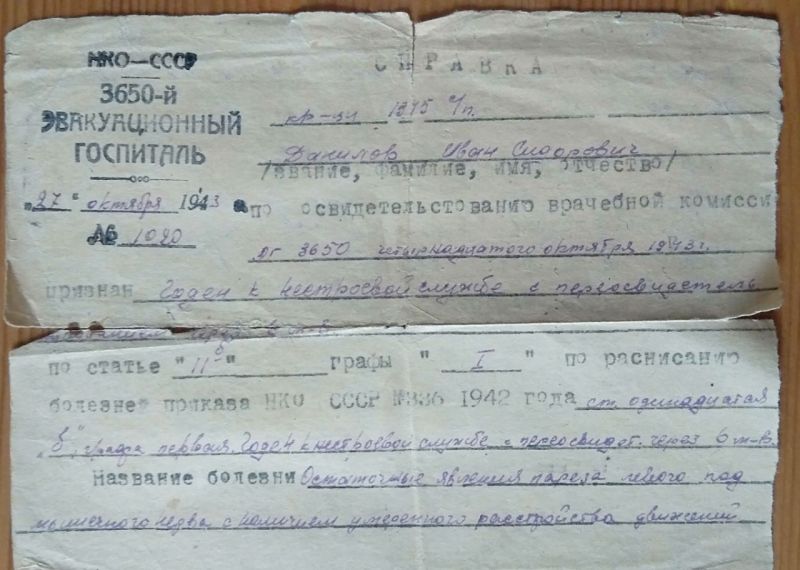 НКО—СССР
3650-й
ЭВАКУАЦИОННЫЙ
ГОСПИТАЛЬ
"27" октября 1943
№ 1020
СПРАВКА
кр-ец 1915 г/р.
Данилов Иван Сидорович
/звание, фамилие, имя, отчество/
по освидетельствованию врачебной комисси
ЭГ 3650 четырнадцатого октября 1943 г.
признан Годен к нестроевой службе с переосвидетель
ствованием через 6 м-в.
по статье "11б" графы "I" по расписанию
болезней приказа НКО СССР №336 1942 года ст. одинадцатая
"б", графа первая. Годен к нестроевой службе с переосвидет. через 6 м-в.
Название болезни Остаточные явления пареза левого под
мышечного нерва с наличием умеренного расстройства движений